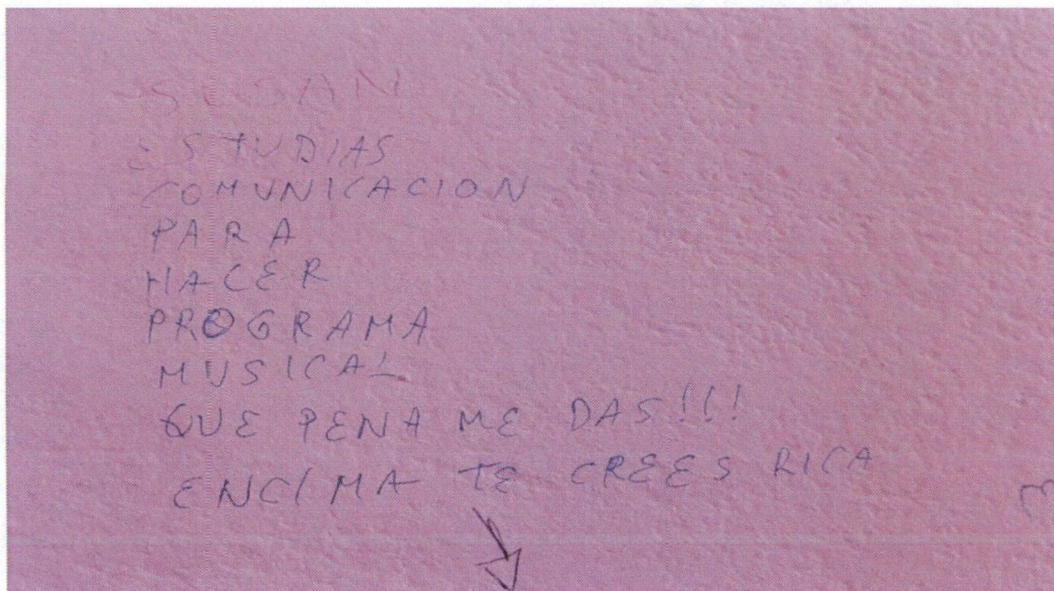 SUSAN
ESTUDIAS
COMUNICACION
PARA
HACER
PROGRAMA
MUSICAL
QUE PENA ME DAS!!!
ENCIMA TE CREES RICA